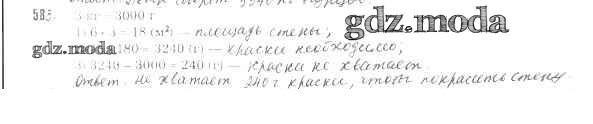 583. 3 кг = 3000 г
1) 6 · 3 = 18 (м²) — площадь стены;
gdz.moda
gdz.moda 180 = 3240 (г) — краски необходимо;
3) 3240 – 3000 = 240 (г) — краски не хватает.
Ответ: не хватает 240 г краски, чтобы покрасить стену.